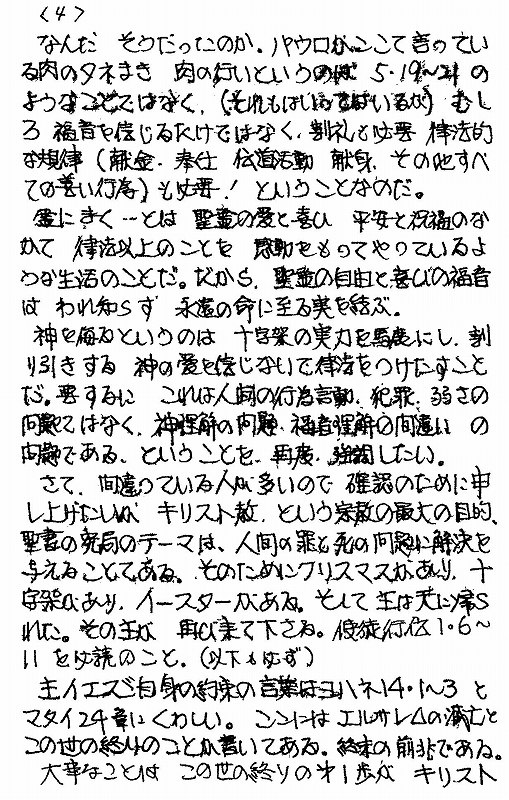 (4)
なんだ そうだったのか。パウロがここで言ってい
る肉のタネまき 肉の行いというのは 5・19〜21の
ようなことではなく、(それもはいってはいるが) むし
ろ 福音を信じるだけではなく、割礼も必要 律法的
な規律(献金・奉仕 伝道活動 献身、その他すべ
ての善い行為)も必要! ということなのだ。
霊にまく…とは 聖霊の愛と喜び 平安と祝福のな
かで 律法以上のことを 感動をもってやっているよ
うな生活のことだ。だから、聖霊の自由と喜びの福音
は われ知らず 永遠の命に至る実を結ぶ。
神を侮るというのは 十字架の実力を馬鹿にし、割
り引きする 神の愛を信じないで律法をつけたすこと
だ。要するに これは人間の行為言動、犯罪、弱さの
問題ではなく、神理解の問題・福音理解の間違い の
問題である、ということを、再度、強調したい。
さて、間違っている人が多いので 確認のために申
し上げたいが キリスト教、という宗教の最大の目的、
聖書の究局のテーマは、人間の罪と死の問題に解決を
与えることである。そのためにクリスマスがあり、十
字架があり、イースターがある。そして主は天に帰ら
れた。その主が 再び来て下さる。使徒行伝1・6〜
11を必読のこと。(以下も必ず)
主イエスご自身の約束の言葉はヨハネ14・1〜3と
マタイ24章にくわしい。ここにはエルサレムの滅亡と
この世の終りのことが書いてある。終末の前兆である。
大事なことは この世の終りの才1歩が キリスト